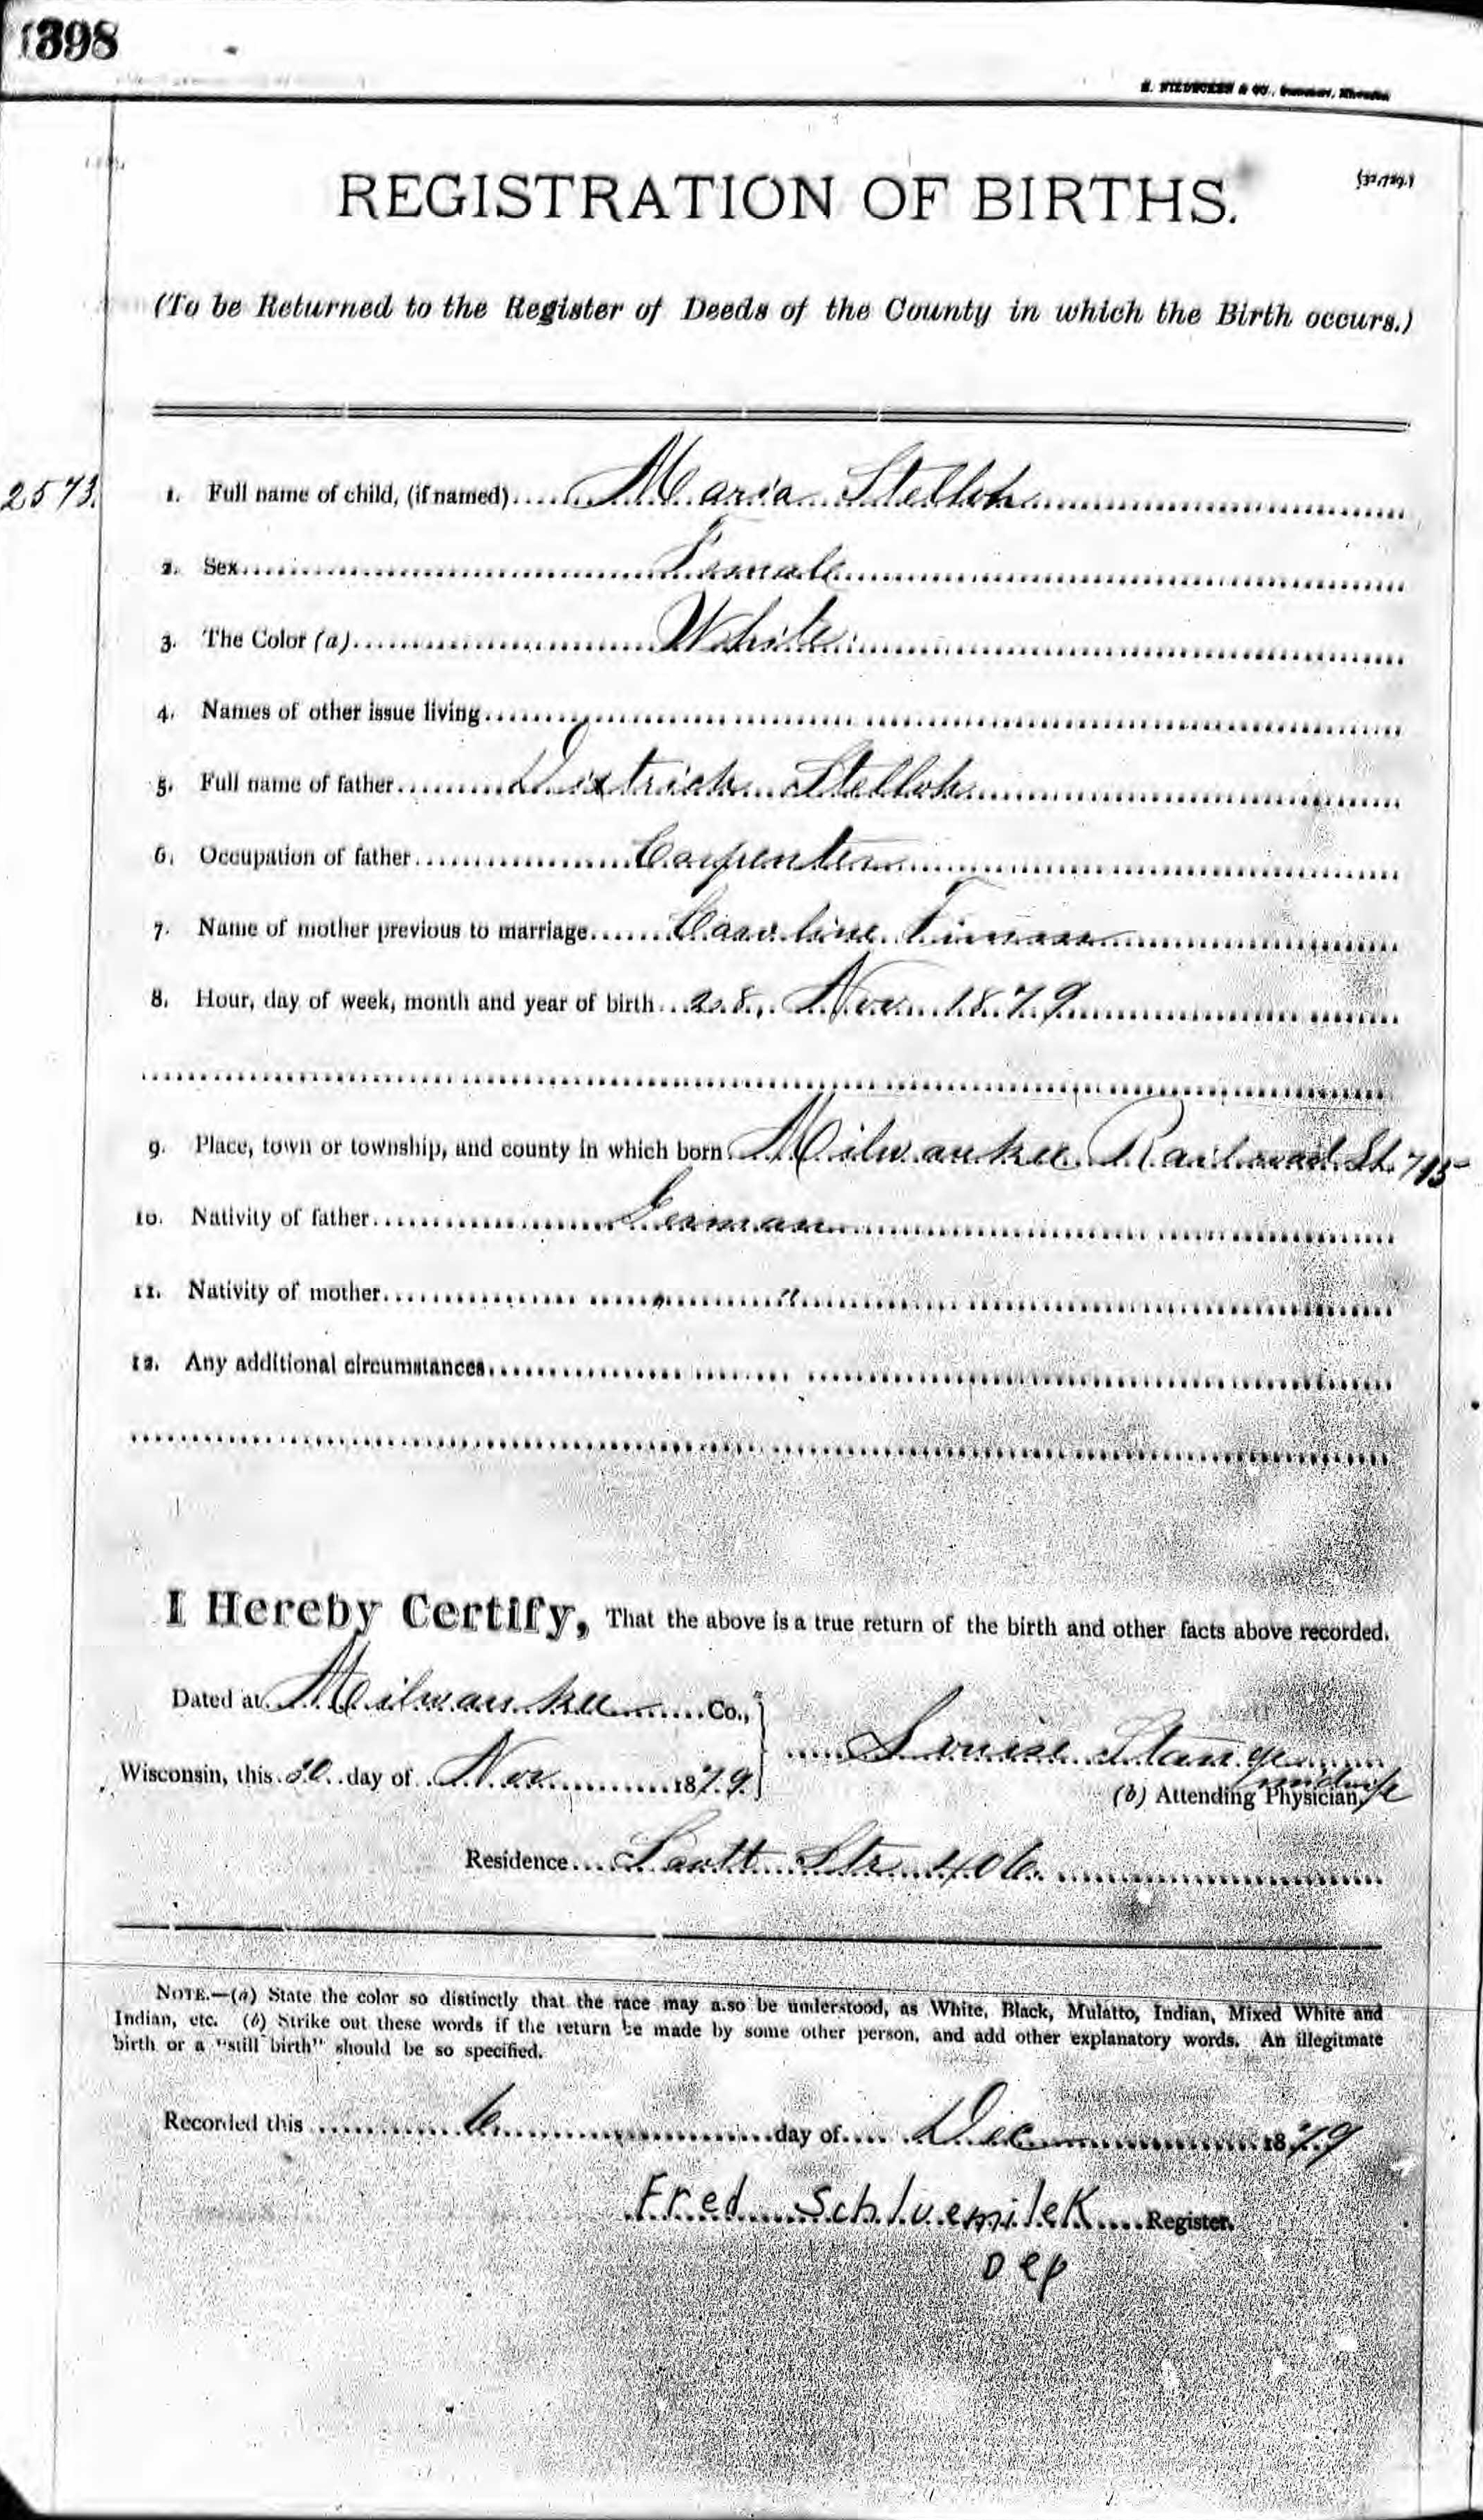 1398
REGISTRATION OF BIRTHS.
(To be Returned to the Register of Deeds of the County in which the Birth occurs.)
2573. 1. Full name of child, (if named) Maria Stelloh
2. Sex Female
3. The Color (a) White
4. Names of other issue living
5. Full name of father Dietrich Stelloh
6. Occupation of father Carpenter
7. Name of mother previous to marriage Caroline
8. Hour, day of week, month and year of birth 28, Nov 1879
9. Place, town or township, and county in which born Milwaukee Railroad St. 715
10. Nativity of father German
11. Nativity of mother " "
12. Any additional circumstances
I Hereby Certify, That the above is a true return of the birth and other facts above recorded.
Dated at Milwaukee Co.,
Louise Stange
Wisconsin, this 30 day of Nov 1879
midwife
(b) Attending Physician,
Residence Scott Str 406.
NOTE.—(a) State the color so distinctly that the race may also be understood, as White, Black, Mulatto, Indian, Mixed White and
Indian, etc. (b) Strike out these words if the return be made by some other person, and add other explanatory words. An illegitmate
birth or a "still birth" should be so specified.
Recorded this 6 day of Dec 1879
Fred Schluemilek Register.
Dep